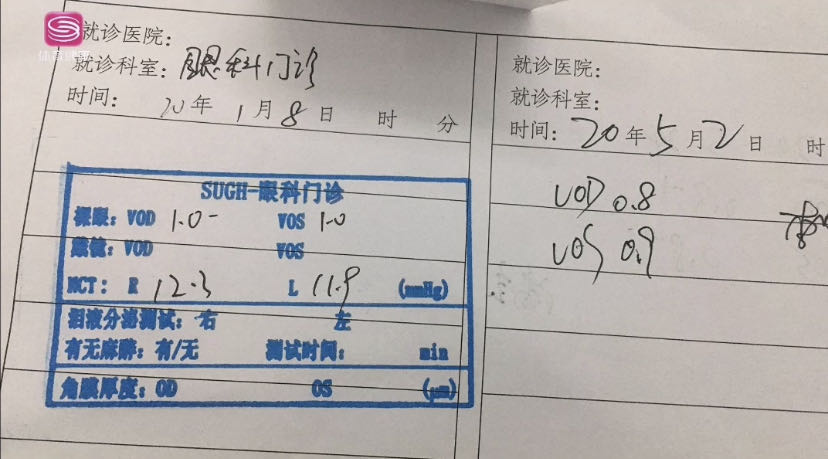 就诊医院:
就诊科室: 眼科门诊
时间: 20年1月8日 时 分
SUGH-眼科门诊
裸眼: VOD 1.0- VOS 1.0
戴镜: VOD VOS
NCT: R 12.3 L 11.9 (mmHg)
泪液分泌测试: 右 左
有无麻醉: 有/无 测试时间: min
角膜厚度: OD OS (μm)
就诊医院:
就诊科室:
时间: 20年5月2日 时
VOD 0.8
VOS 0.9